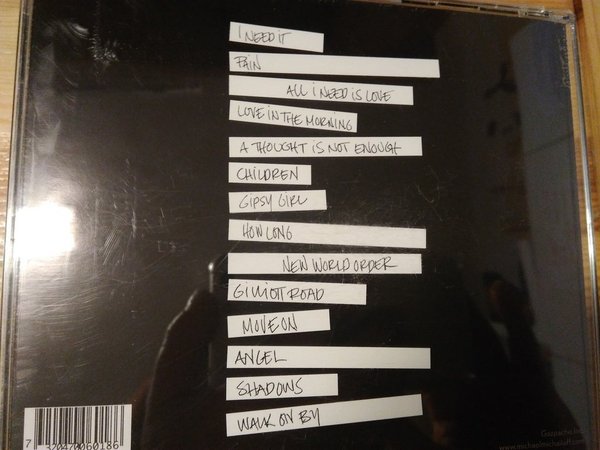 I NEED IT
PAIN
ALL I NEED IS LOVE
LOVE IN THE MORNING
A THOUGHT IS NOT ENOUGH
CHILDREN
GIPSY GIRL
HOW LONG
NEW WORLD ORDER
GILLIOTT ROAD
MOVE ON
ANGEL
SHADOWS
WALK ON BY
7 320470060186